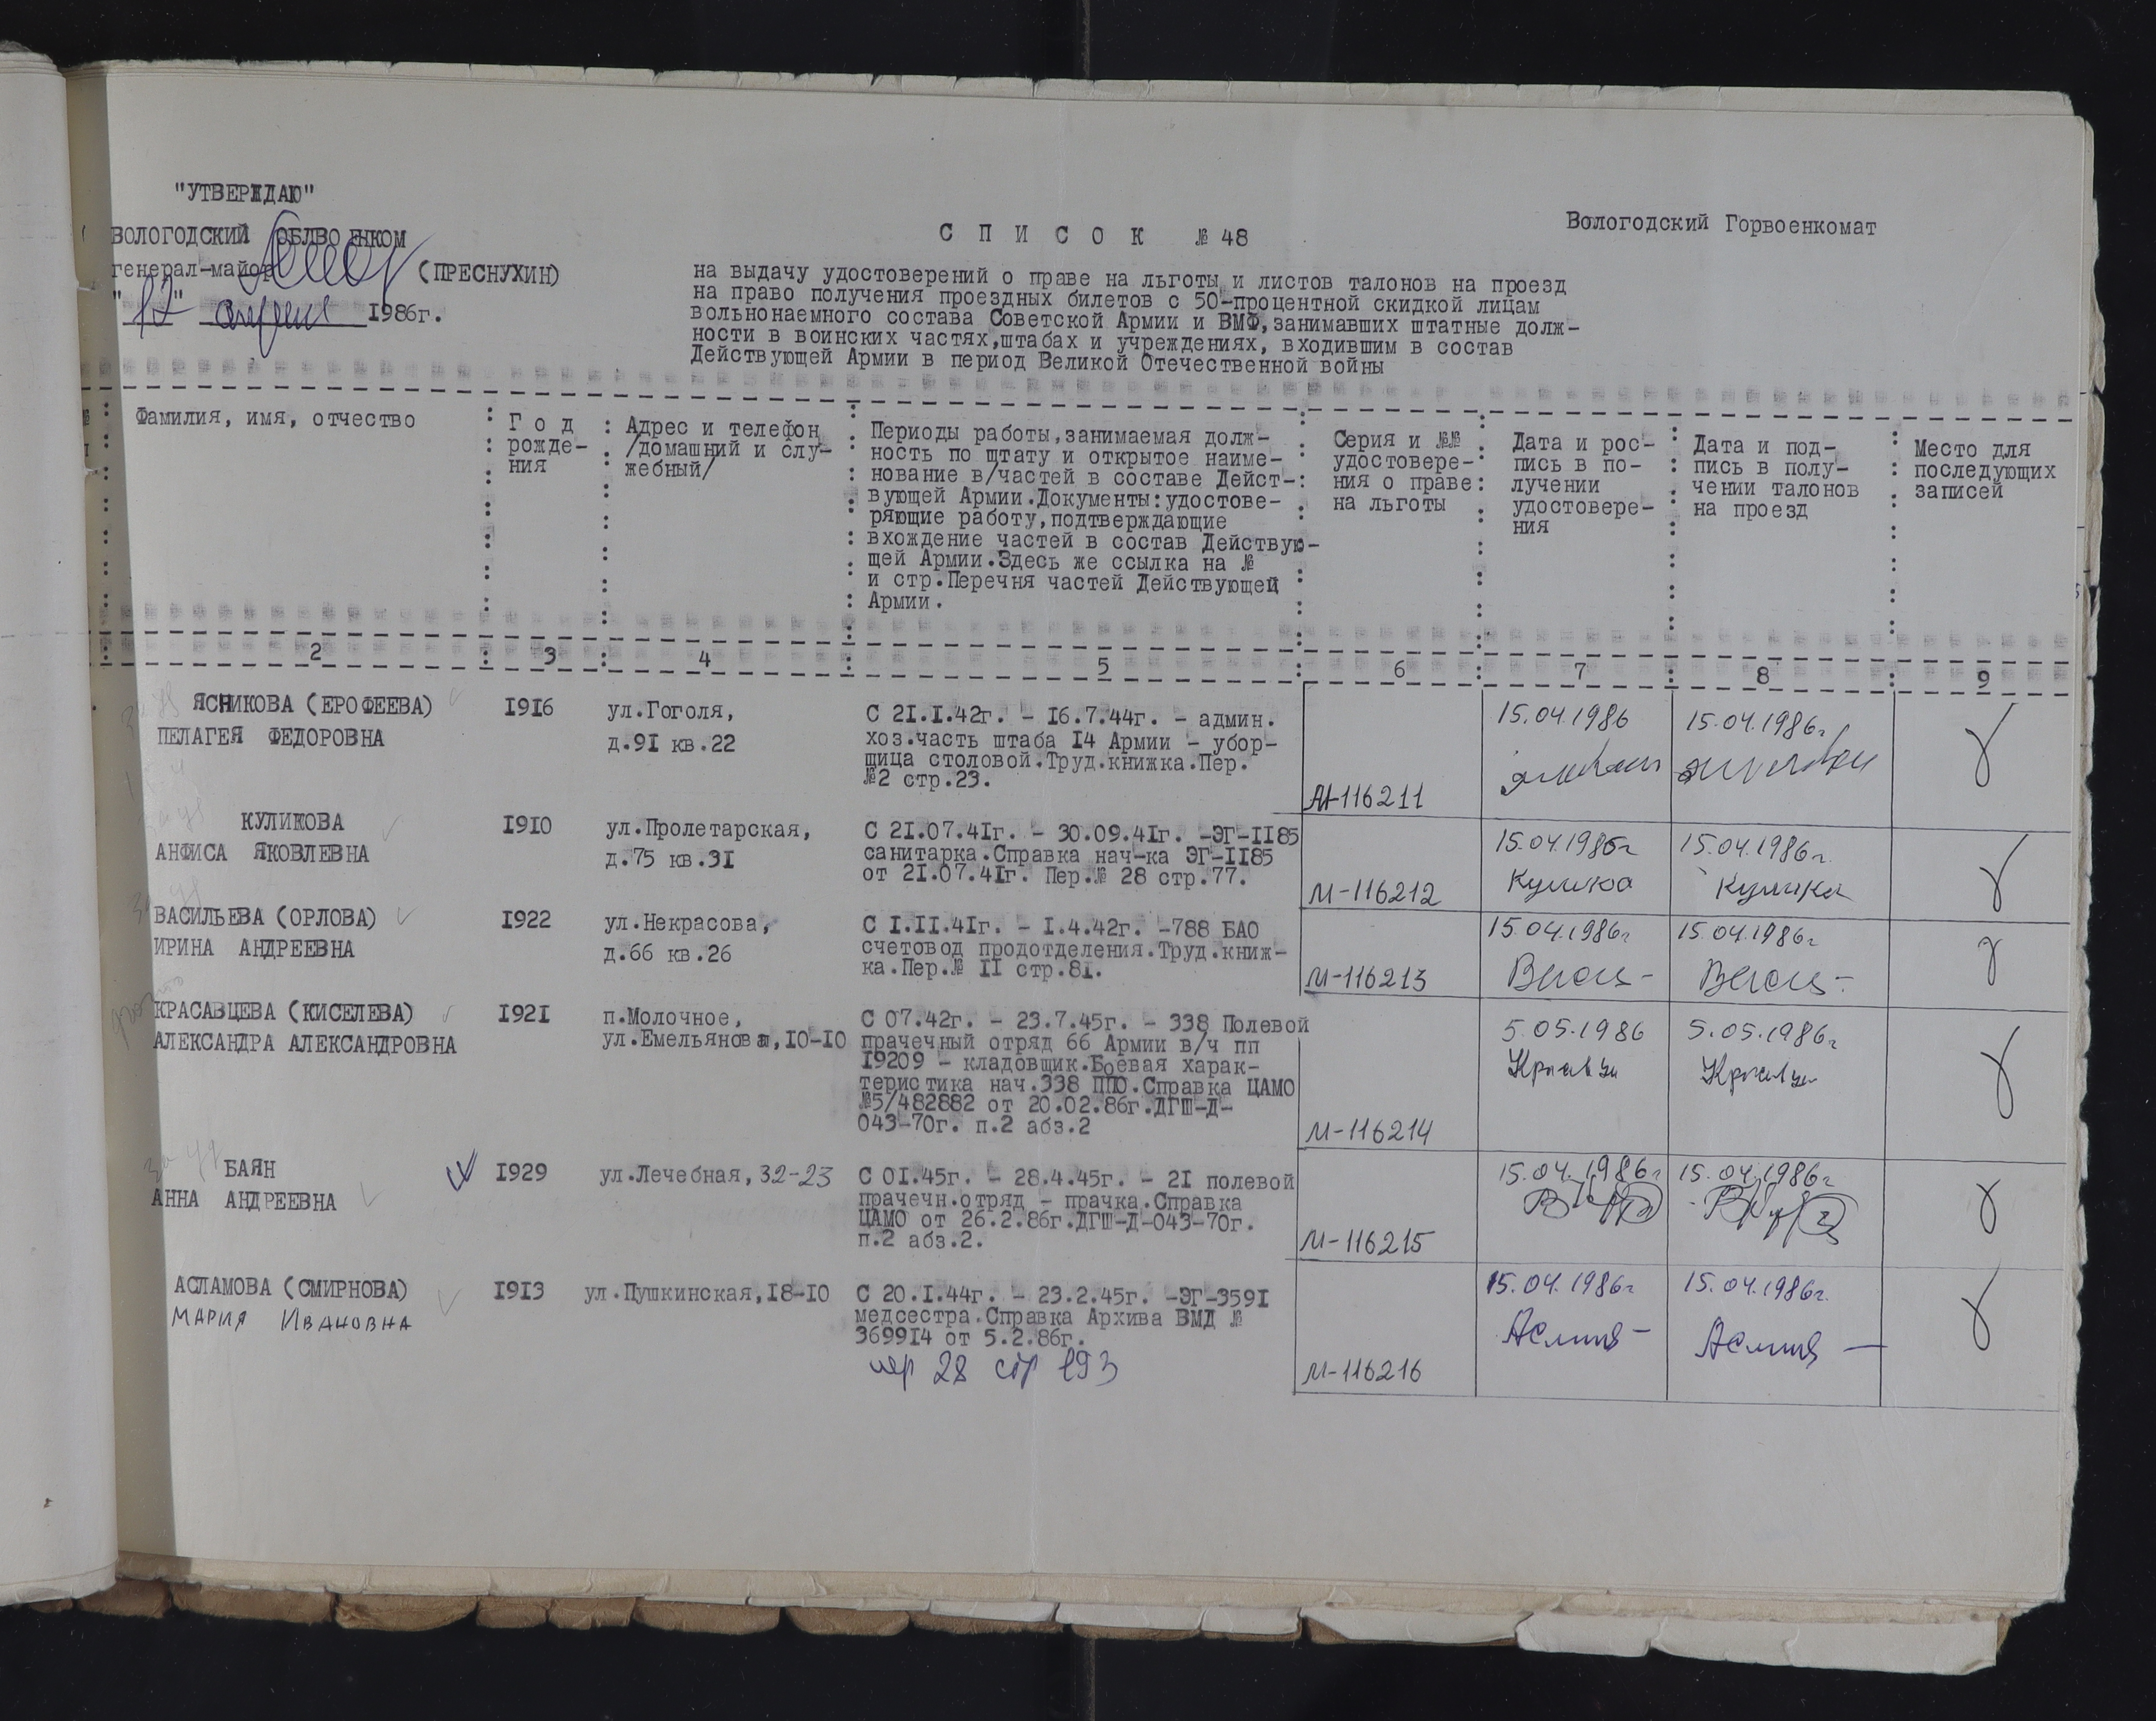 "УТВЕРЖДАЮ"
ВОЛОГОДСКИЙ ОБЛВОЕНКОМ
генерал-майор (ПРЕСНУХИН)
"12" апреля 1986г.
С П И С О К № 48
Вологодский Горвоенкомат
на выдачу удостоверений о праве на льготы и листов талонов на проезд
на право получения проездных билетов с 50-процентной скидкой лицам
вольнонаемного состава Советской Армии и ВМФ,занимавших штатные долж-
ности в воинских частях,штабах и учреждениях, входившим в состав
Действующей Армии в период Великой Отечественной войны
Фамилия, имя, отчество
Г о д
рожде-
ния
Адрес и телефон
/домашний и слу-
жебный/
Периоды работы,занимаемая долж-
ность по штату и открытое наиме-
нование в/частей в составе Дейст-
вующей Армии.Документы:удостове-
ряющие работу,подтверждающие
вхождение частей в состав Действую-
щей Армии.Здесь же ссылка на №
и стр.Перечня частей Действующей
Армии.
Серия и №№
удостовере-
ния о праве
на льготы
Дата и рос-
пись в по-
лучении
удостовере-
ния
Дата и под-
пись в полу-
чении талонов
на проезд
Место для
последующих
записей
2 3 4 5 6 7 8 9
ЯСНИКОВА (ЕРОФЕЕВА)
ПЕЛАГЕЯ ФЕДОРОВНА
I9I6
ул.Гоголя,
д.9I кв.22
С 2I.I.42г. - I6.7.44г. - админ.
хоз.часть штаба I4 Армии - убор-
щица столовой.Труд.книжка.Пер.
№2 стр.23.
М-116211
15.04.1986
15.04.1986г.
КУЛИКОВА
АНФИСА ЯКОВЛЕВНА
I9I0
ул.Пролетарская,
д.75 кв.3I
С 2I.07.4Iг. - 30.09.4Iг. -ЭГ-II85
санитарка.Справка нач-ка ЭГ-II85
от 2I.07.4Iг. Пер.№ 28 стр.77.
М-116212
15.04.1986г
15.04.1986г.
ВАСИЛЬЕВА (ОРЛОВА)
ИРИНА АНДРЕЕВНА
I922
ул.Некрасова,
д.66 кв.26
С I.II.4Iг. - I.4.42г. -788 БАО
счетовод продотделения.Труд.книж-
ка.Пер.№ II стр.8I.
М-116213
15.04.1986г
15.04.1986г
КРАСАВЦЕВА (КИСЕЛЕВА)
АЛЕКСАНДРА АЛЕКСАНДРОВНА
I92I
п.Молочное,
ул.Емельянова,I0-I0
С 07.42г. - 23.7.45г. - 338 Полевой
прачечный отряд 66 Армии в/ч пп
I9209 - кладовщик.Боевая харак-
теристика нач.338 ППО.Справка ЦАМО
№5/482882 от 20.02.86г.ДГШ-Д-
043-70г. п.2 абз.2
М-116214
5.05.1986
5.05.1986г
БАЯН
АННА АНДРЕЕВНА
I929
ул.Лечебная,32-23
С 0I.45г. - 28.4.45г. - 2I полевой
прачечн.отряд - прачка.Справка
ЦАМО от 26.2.86г.ДГШ-Д-043-70г.
п.2 абз.2.
М-116215
15.04.1986г
15.04.1986г
АСЛАМОВА (СМИРНОВА)
МАРИЯ ИВАНОВНА
I9I3
ул.Пушкинская,I8-I0
С 20.I.44г. - 23.2.45г. -ЭГ-359I
медсестра.Справка Архива ВМД №
3699I4 от 5.2.86г.
пер 28 стр 193
М-116216
15.04.1986г
15.04.1986г.